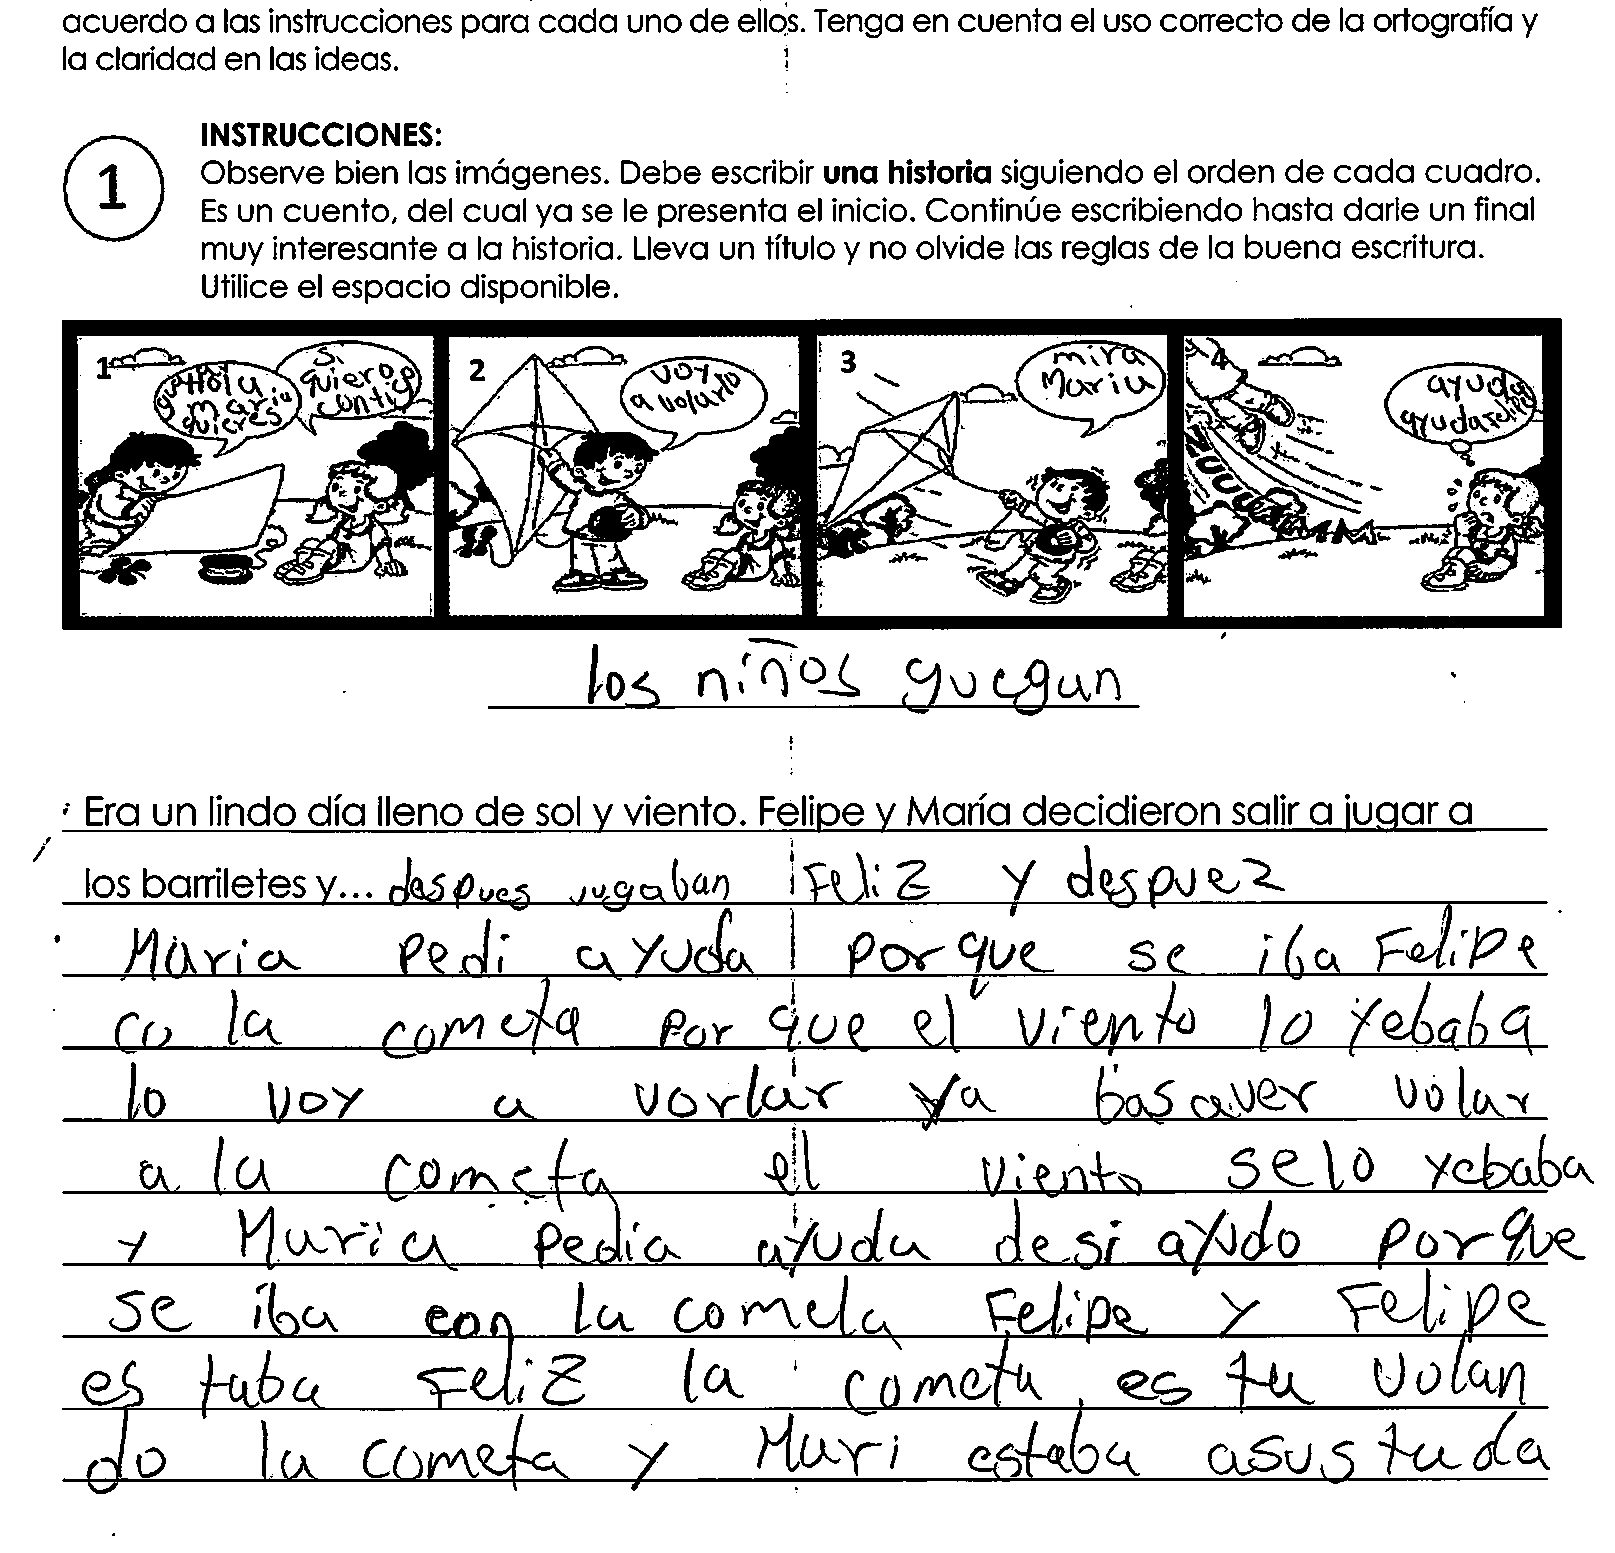 acuerdo a las instrucciones para cada uno de ellos. Tenga en cuenta el uso correcto de la ortografía y
la claridad en las ideas.
1
INSTRUCCIONES:
Observe bien las imágenes. Debe escribir una historia siguiendo el orden de cada cuadro.
Es un cuento, del cual ya se le presenta el inicio. Continúe escribiendo hasta darle un final
muy interesante a la historia. Lleva un título y no olvide las reglas de la buena escritura.
Utilice el espacio disponible.
1
Hola
maria
quieres
si
quiero
contigo
2
voy
a volarlo
3
mira
Maria
4
ayuda
ayuda
los niños guegan
Era un lindo día lleno de sol y viento. Felipe y María decidieron salir a jugar a
los barriletes y... despues jugaban Feliz y despuez
Maria Pedi ayuda porque se iba Felipe
co la cometa por que el viento lo yebaba
lo voy a vorlar ya bas aver volar
a la cometa el viento selo yebaba
y Maria Pedia ayuda desi ayudo porque
se iba con la comela Felipe y Felipe
es taba Feliz la cometa es ta volan
do la cometa y Mari estaba asus tada